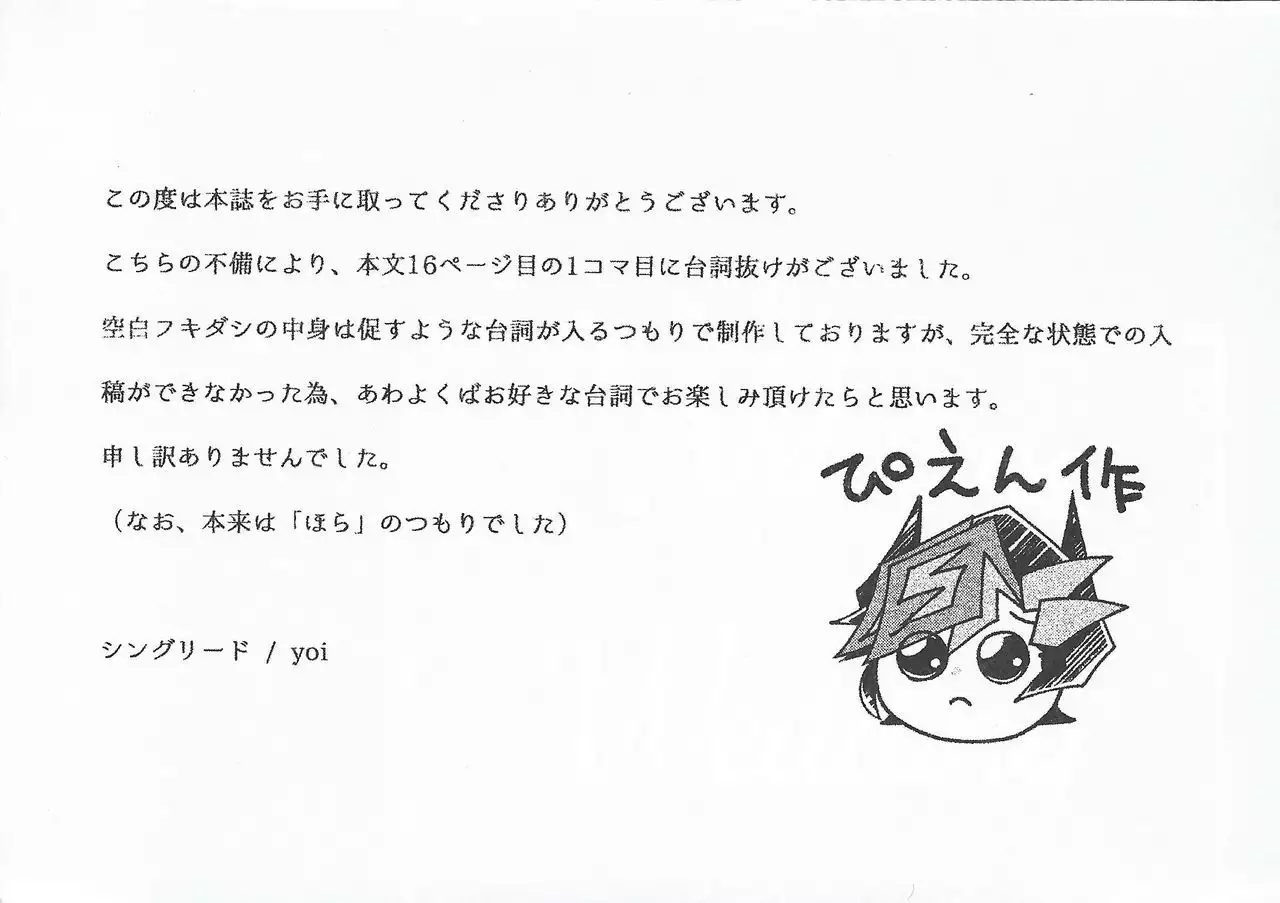 この度は本誌をお手に取ってくださりありがとうございます。
こちらの不備により、本文16ページ目の1コマ目に台詞抜けがございました。
空白フキダシの中身は促すような台詞が入るつもりで制作しておりますが、完全な状態での入
稿ができなかった為、あわよくばお好きな台詞でお楽しみ頂けたらと思います。
申し訳ありませんでした。
（なお、本来は「ほら」のつもりでした）
ぴえん作
シングリード / yoi